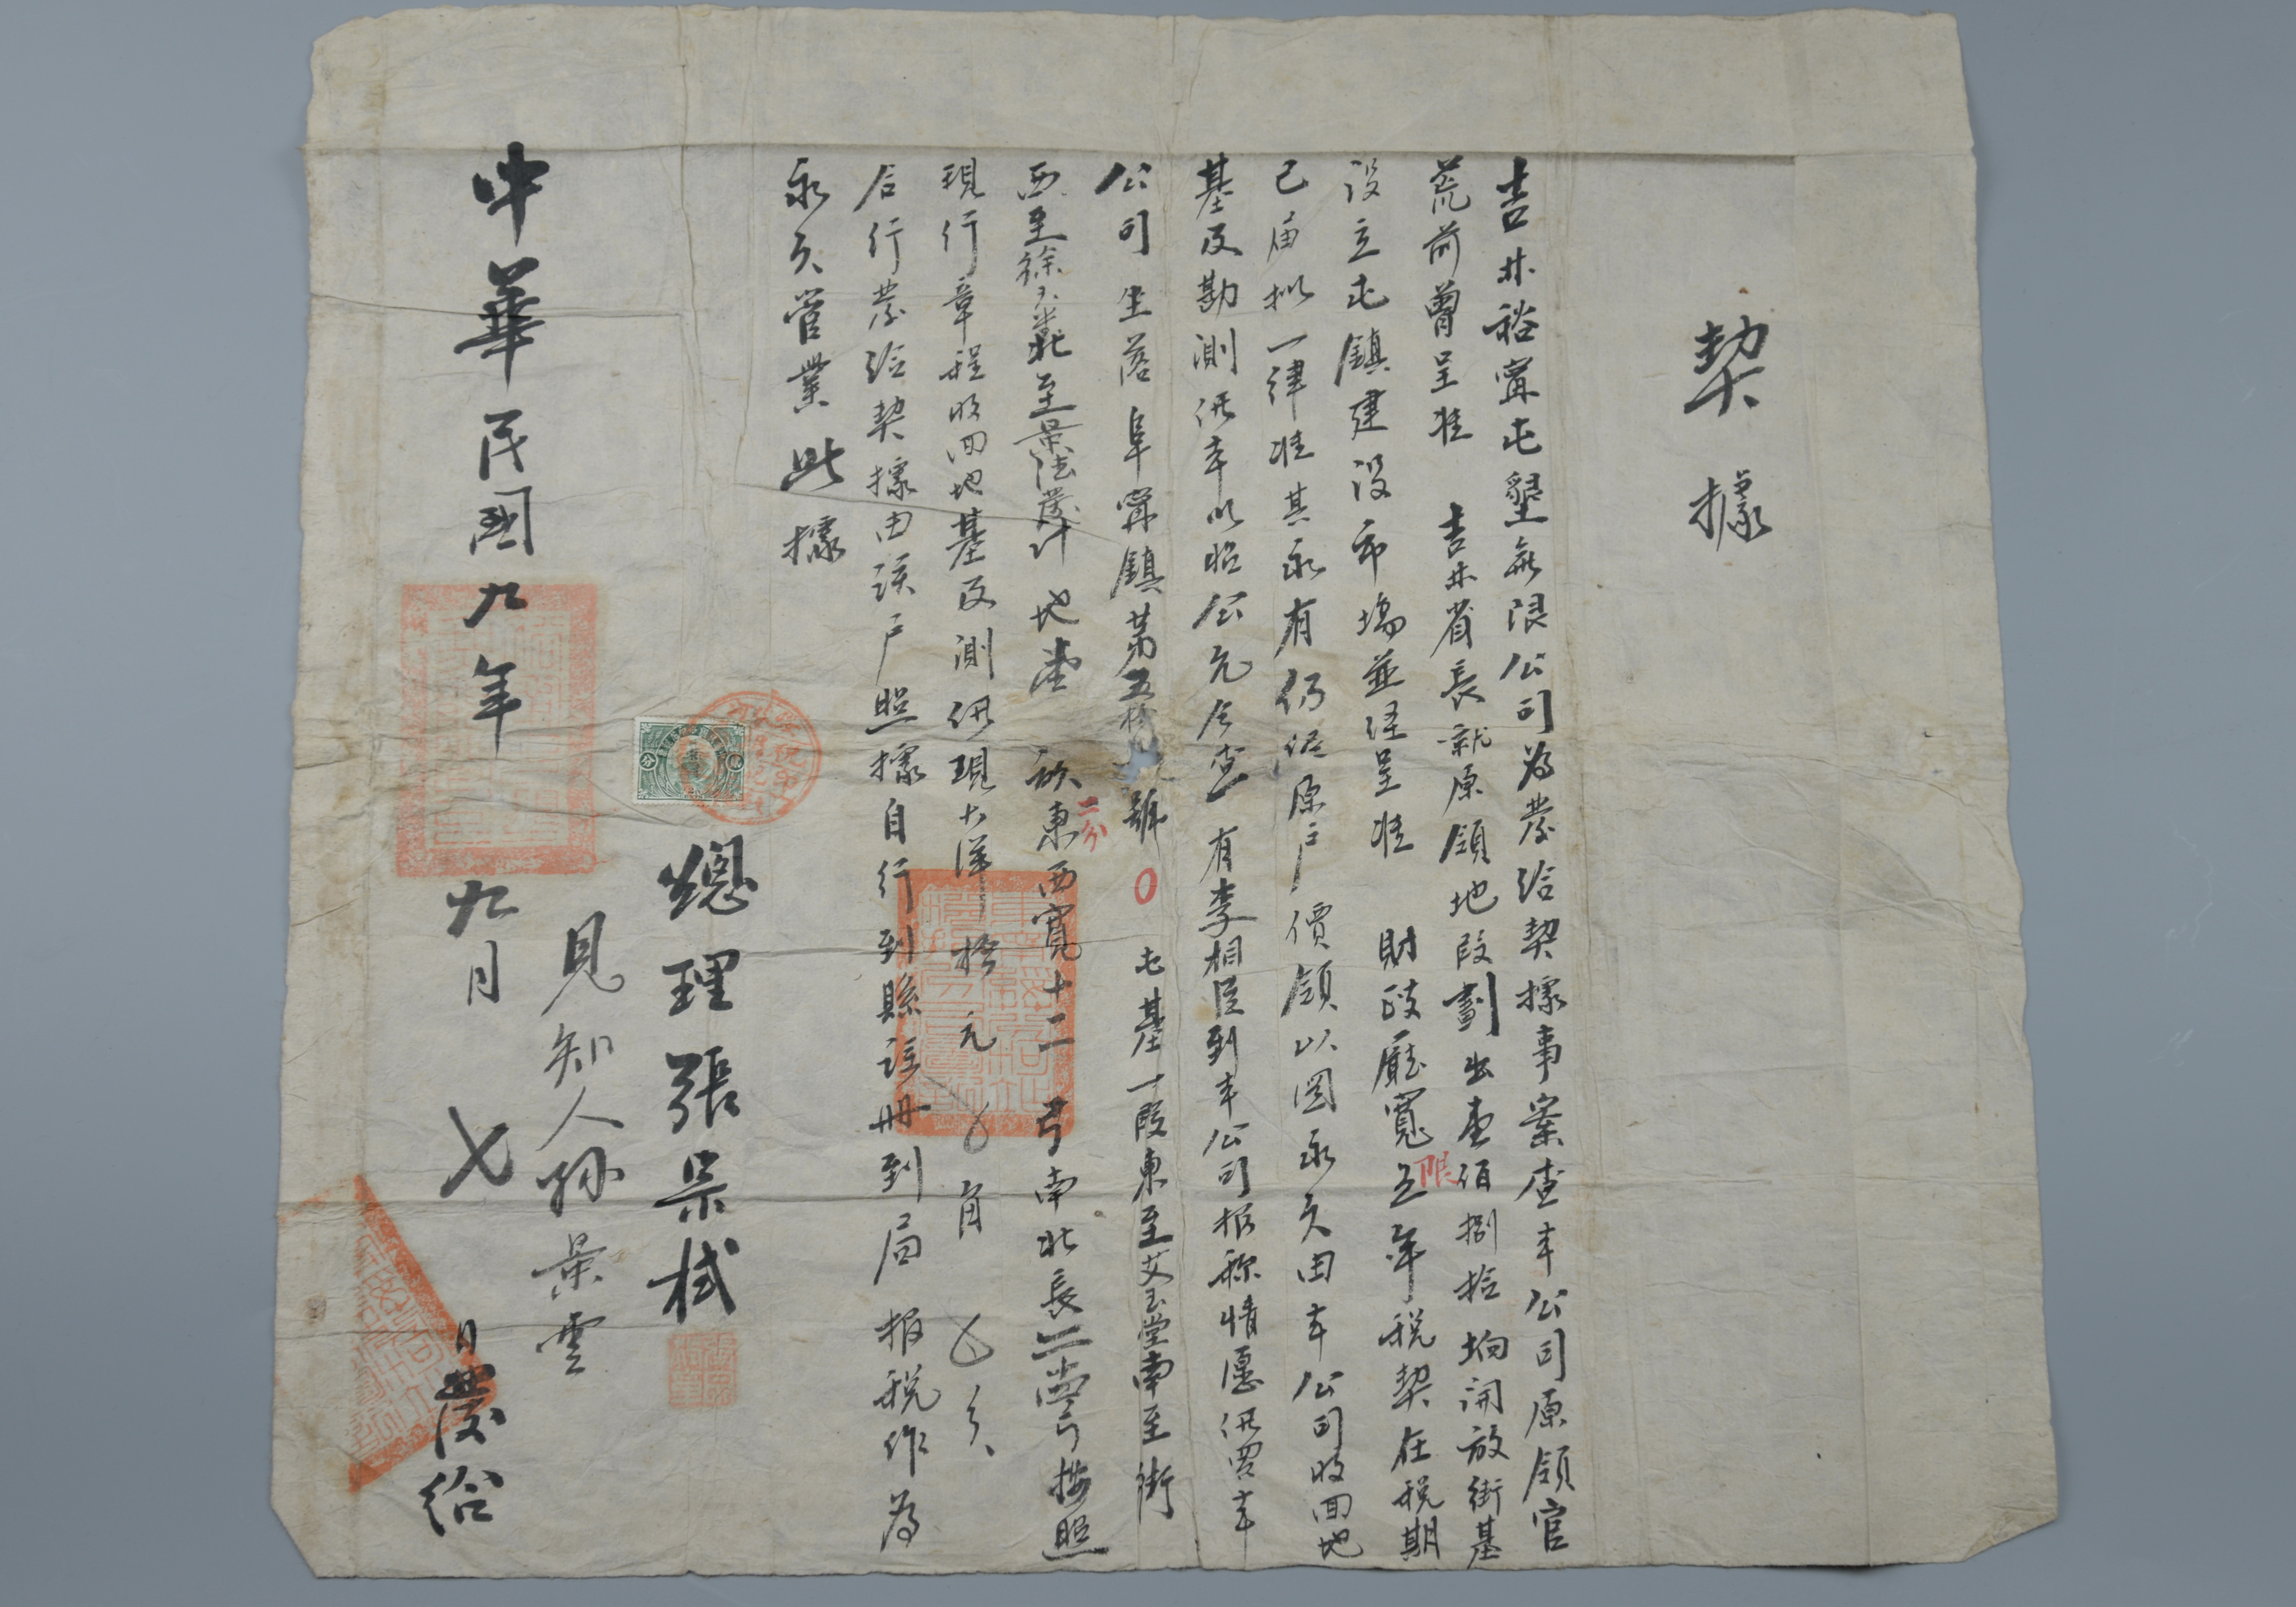 契據
吉林裕寗屯墾無限公司為發給契據事案查本公司原領官
荒前曾呈准 吉林省長就原領地段劃出壹佰捌拾坰開放街基
設立屯鎮建設市場並經呈准 財政廳寬限五年稅契在稅期
已届拟一律准其永有仍從原户價領以图永久由本公司收回地
基及勘測洋本以昭公允今查有李相臣到本公司报称情愿価買本
公司坐落阜寗鎮第五拾 號〇 屯基一段東至艾玉堂南至街
西至徐 北至景 計地壹 二分 東西寬十二弓南北長 弓按照
現行章程收回地基及測 現大洋拾元 角 分
后行發給契據由該户照據自行到縣註册到局报稅作為
永久管業此據
總理張杲棫
見知人孙景雲
中華民國九年九月七日發给